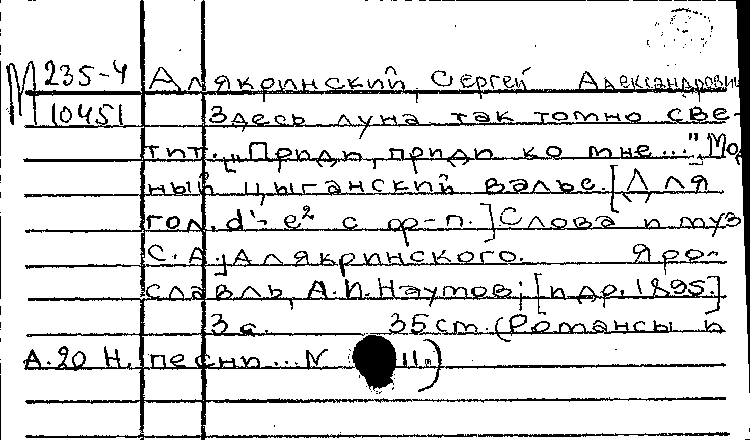 М 235-4 Алякринский, Сергей Александрович
10451 Здесь луна так томно све-
тит. "Приди, приди ко мне..." Мод
ный цыганский вальс. [Для
гол. d'- e² с ф-п.] Слова и муз
С. А. Алякринского. Яро-
славль, А. И. Наумов; [и др. 1895.]
3 с. 35 cm. (Романсы и
А.20 Н. песни... N 11.)